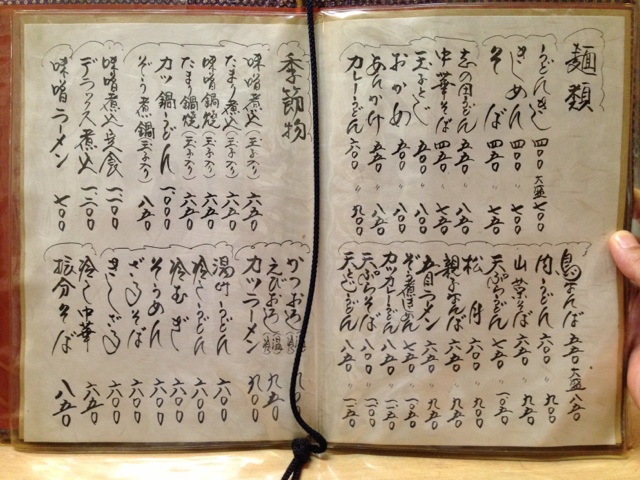 麺類
うどんきし 四〇〇 大盛 七〇〇
きしめん 四〇〇 〃 七〇〇
そば 四五〇 〃 七五〇
志の田うどん 五五〇 〃 八五〇
中華そば 四五〇 〃 七五〇
玉子とじ 五〇〇 〃 八〇〇
おかめ 五〇〇 〃 八〇〇
あんかけ 五五〇 〃 八五〇
カレーうどん 六〇〇 〃 九〇〇
鳥なんば 五五〇 大盛 八五〇
肉うどん 六〇〇 〃 九〇〇
山菜そば 六〇〇 〃 九〇〇
天ぷらうどん 七五〇 〃 一〇五〇
松月 六〇〇 〃 九〇〇
親子なんば 六五〇 〃 九五〇
五目ラーメン 六五〇 〃 九五〇
ぞう煮きしめん 七五〇
カツカレーうどん 八五〇
天ぷらそば 八〇〇 〃 一一〇〇
天とじうどん 八五〇 〃 一一五〇
季節物
味噌煮込(玉子入り) 六五〇
たまり煮込(玉子入り) 六五〇
味噌鍋焼(玉子入り) 六五〇
たまり鍋焼(玉子入り) 六五〇
カツ鍋うどん 一〇〇〇
ぞう煮鍋(玉子入り) 八五〇
味噌煮込定食 一一〇〇
デラックス煮込 一二〇〇
味噌ラーメン 七〇〇
かつおろし 九〇〇
えびおろし 九五〇
カツラーメン 九〇〇
湯竹うどん 六〇〇
冷しうどん 六〇〇
冷むぎ 六〇〇
そうめん 六〇〇
ざるそば 六〇〇
きしざる 六〇〇
冷し中華 六五〇
振分そば 八五〇